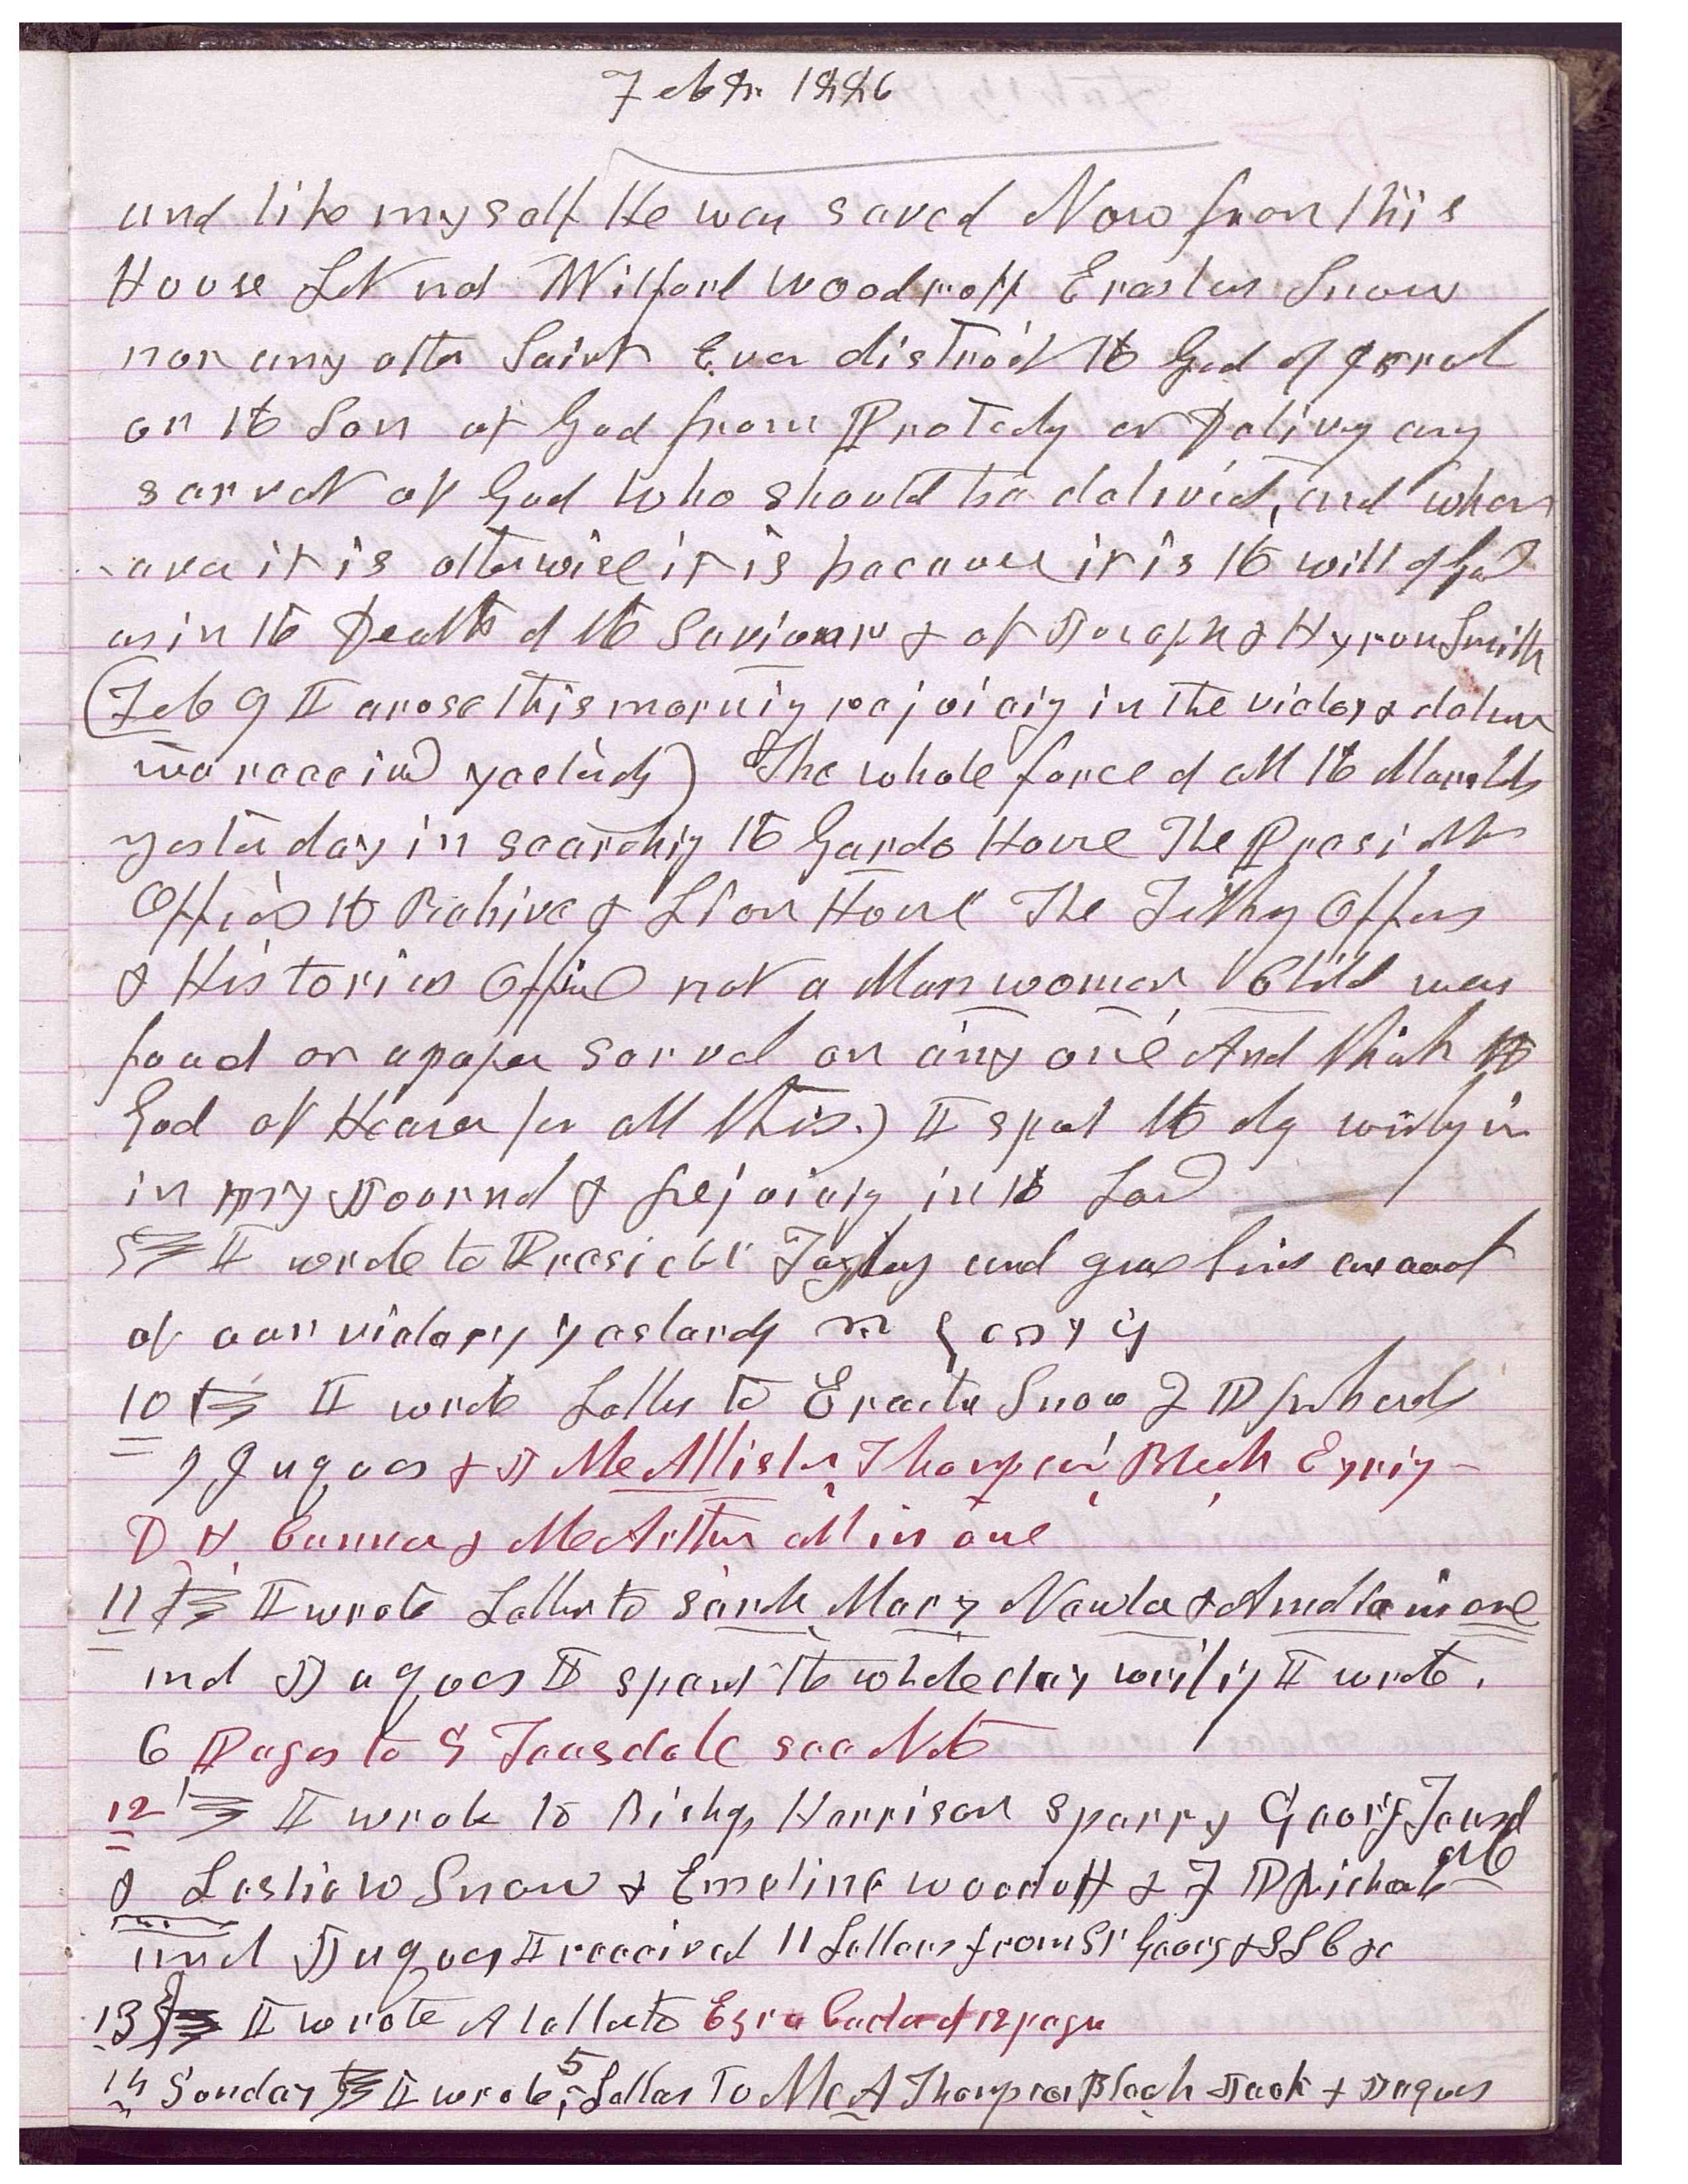 Febr 1886
and like myself He was saved Now from this
House Let not Wilford Woodruff Erastus Snow
nor any other Saint Ever distrust the God of Israel
or the Son of God from Protecting or Deliving any
servant of God who should be deliverd, and when
-ever it is otherwise it is because it is the will of God
as in the Death of the Saviour & of Joseph & Hyrum Smith
(Feb 9 I arose this morning rejoicing in the victory & deliver
we received yesterday) The whole force of all the Marshals
yesterday in searching the Gardo House The Presidents
Office the Beehive & Lion House The Tithing Offices
& Historians Office not a Man woman, Child was
found or a paper served on any one And thank the
God of Heaven for all this.) I spent the day writing in
in my Journal & Rejoicing in the Lord
I wrote to President Taylor and gave him account
of our victory yesterday
10 I wrote Letters to Erastus Snow F D Richards
Jaques & J McAllister, Thompson, Bleak Eyring
D H Cannon & McArthur all in one
11 I wrote Letters to Sarah, Mary Newton & Amelia in one
and Jaques I spent the whole day writing I wrote.
6 Pages to G Teasdale see Note
12 I wrote to Bishop Harrison Sperry George Teasd
ale
& Leslie W Snow & Emeline Woodruff & F D Richards
and Jaques I received 11 Letters from St George & S L C &c
13 I wrote A letter to Ezra Carter of 12 pages
14 Sunday I wrote 5 Letters To McA Thompson Bleak Jack + Jaques